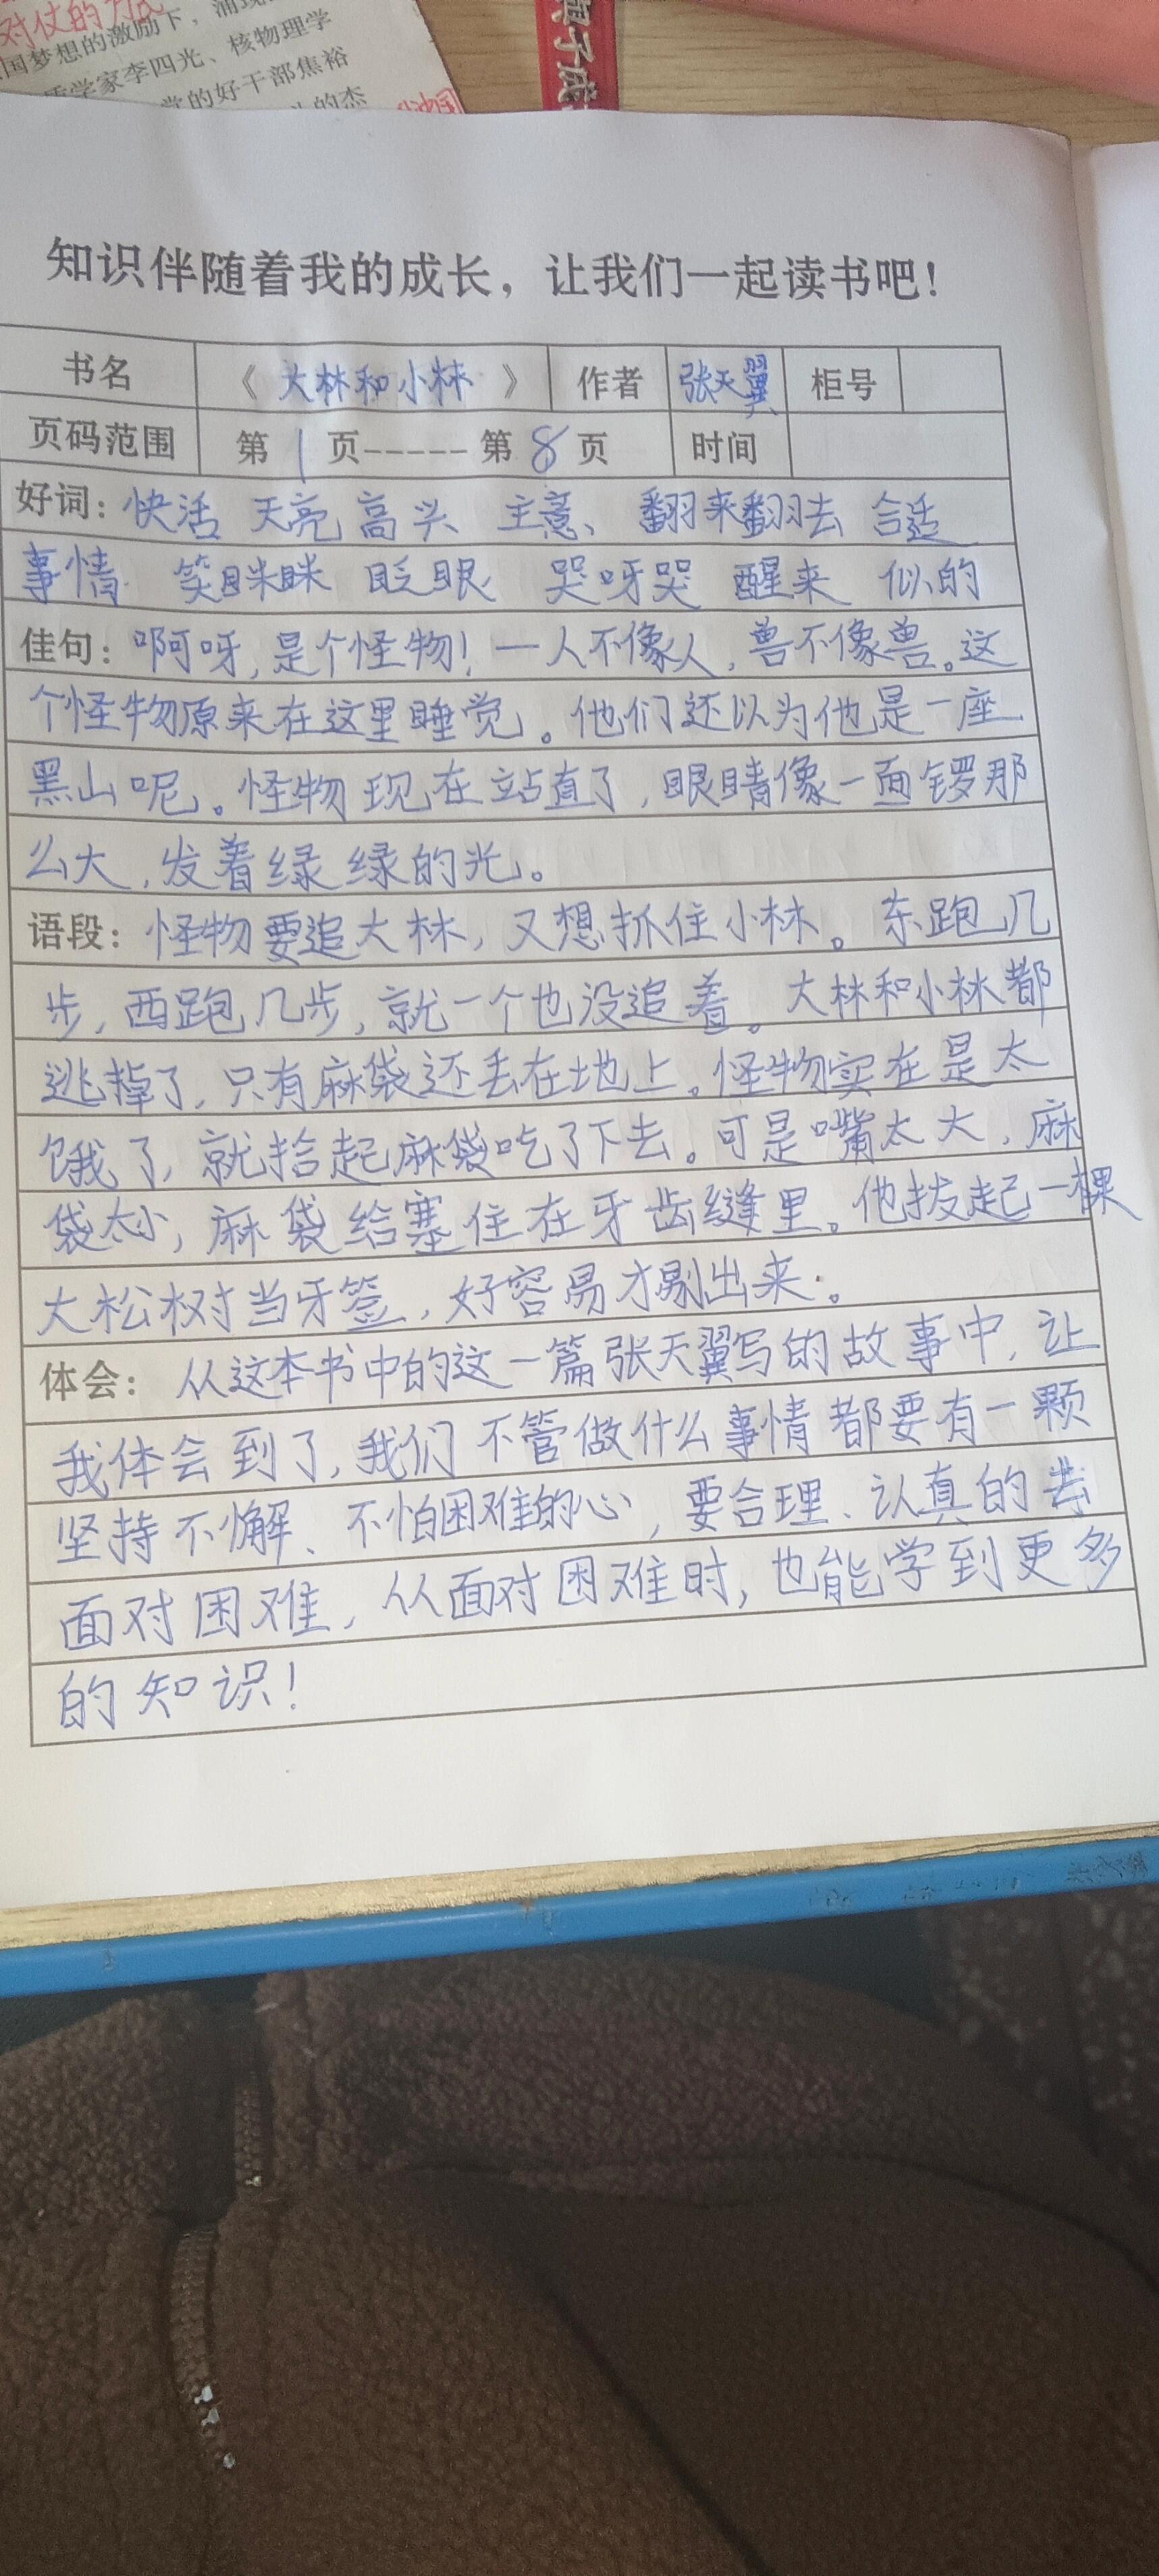 对仗的
国梦想的激励下，涌现
质学家李四光、核物理学
党的好干部焦裕
的杰
知识伴随着我的成长，让我们一起读书吧！
书名 《 大林和小林 》 作者 张天翼 柜号
页码范围 第 1 页-----第 8 页 时间
好词：快活 天亮 高兴 主意、 翻来翻去 合适
事情 笑眯眯 眨眼 哭呀哭 醒来 似的
佳句：啊呀，是个怪物！一人不像人，兽不像兽。这
个怪物原来在这里睡觉。他们还以为他是一座
黑山呢。怪物现在站直了，眼睛像一面锣那
么大，发着绿绿的光。
语段：怪物要追大林，又想抓住小林。东跑几
步，西跑几步，就一个也没追着。大林和小林都
逃掉了，只有麻袋还丢在地上。怪物实在是太
饿了，就拾起麻袋吃了下去。可是嘴太大，麻
袋太小，麻袋给塞住在牙齿缝里。他拔起一棵
大松树当牙签，好容易才剔出来。
体会：从这本书中的这一篇张天翼写的故事中，让
我体会到了，我们不管做什么事情都要有一颗
坚持不懈、不怕困难的心，要合理、认真的去
面对困难，从面对困难时，也能学到更多
的知识！